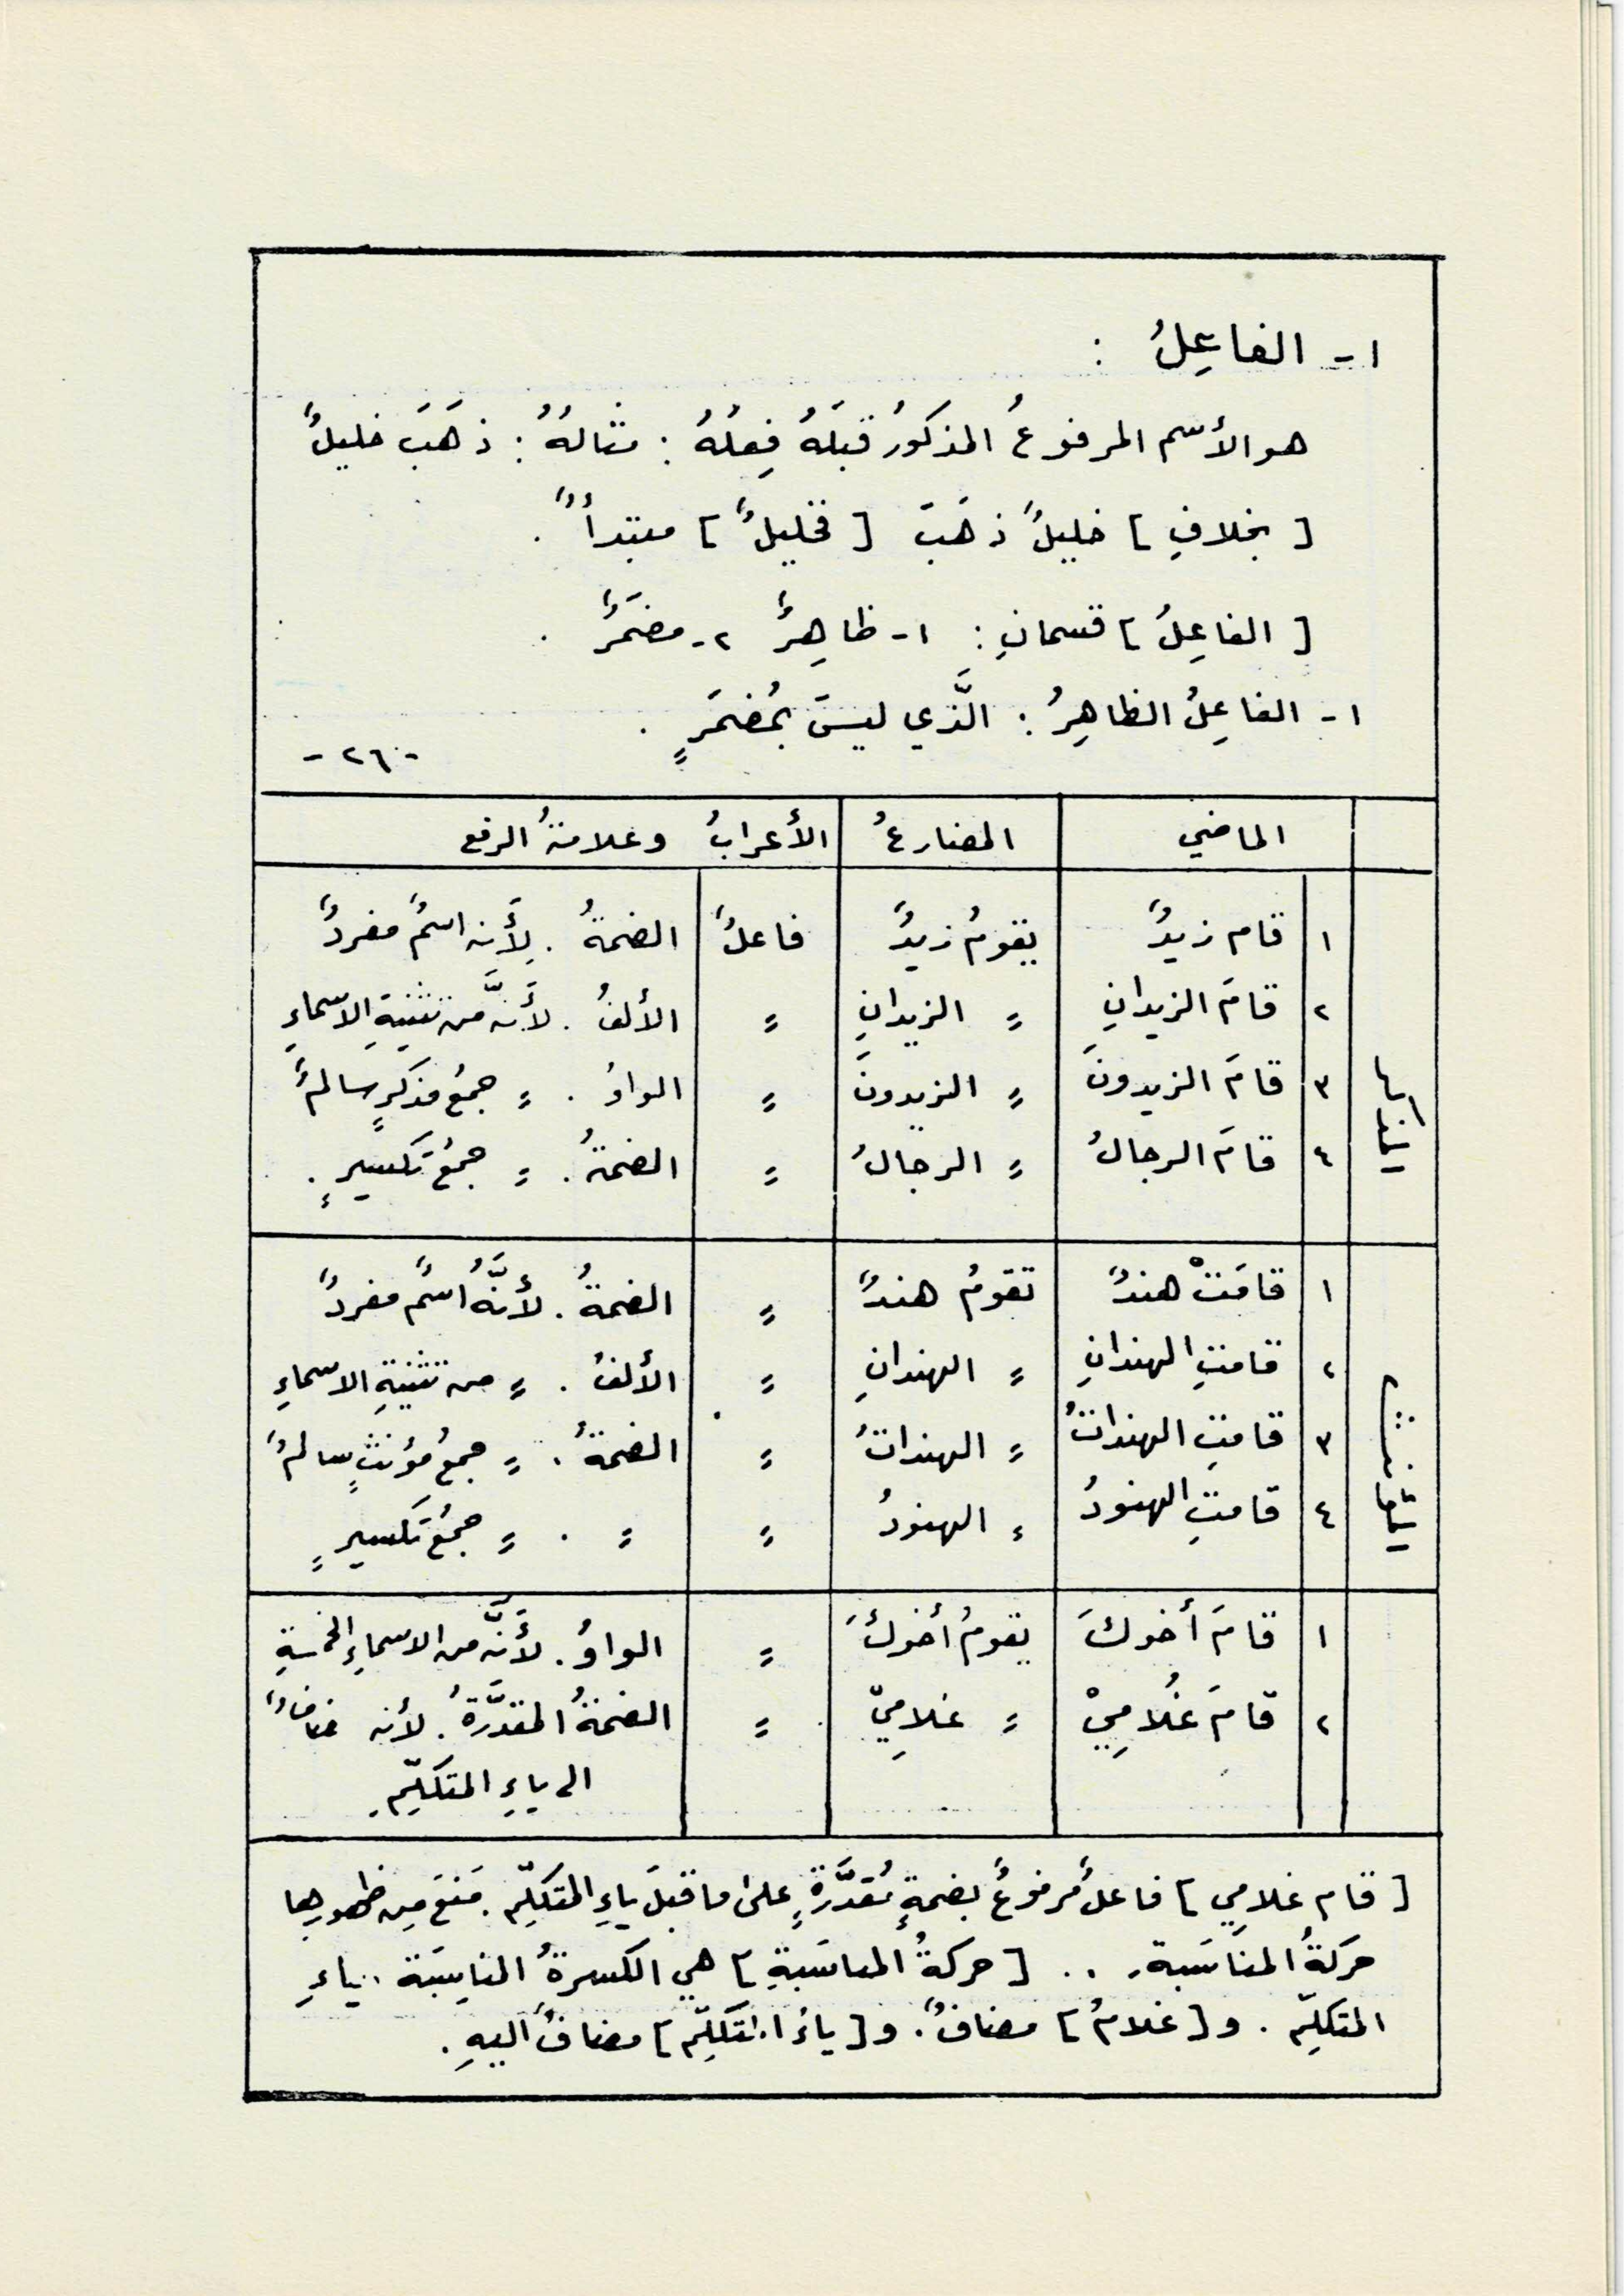 ١ - الفاعِلُ :
هو الأسم المرفوعُ المذكورُ قبلَهُ فِعلُهُ : مثالهُ : ذهَبَ خليلٌ
[ بخلافِ ] خليلٌ ذهَبَ [ فخليلٌ ] مبتدأٌ .
[ الفاعِلُ ] قسمانِ : ١ - ظاهِرٌ ٢ - مضمَرٌ .
١ - الفاعِلُ الظاهِرُ : الَّذي ليسَ بمُضمَرٍ .
- ٢٦ -
الماضي المضارعُ الأعرابُ وعلامةُ الرفع
المذكر
١ قام زيدٌ يقومُ زيدٌ فاعلٌ الضمةُ . لِأَنه اسمٌ مفردٌ
٢ قامَ الزيدانِ 〃 الزيدانِ 〃 الألفُ . لأَنهَّ من تثنيةِ الاسماءِ
٣ قامَ الزيدونَ 〃 الزيدونَ 〃 الواوُ . 〃 جمعُ مذكرٍ سالمٌ
٤ قامَ الرجالُ 〃 الرجالُ 〃 الضمةُ . 〃 جمعُ تكسيرٍ .
المؤنث
١ قامَتْ هندٌ تقومُ هندٌ 〃 الضمةُ . لأنَّهُ اسمٌ مفردٌ
٢ قامتِ الهندانِ 〃 الهندانِ 〃 الألفُ . 〃 من تثنيةِ الاسماءِ
٣ قامتِ الهنداتُ 〃 الهنداتُ 〃 الضمةُ . 〃 جمعُ مؤنثٍ سالمٌ
٤ قامتِ الهنودُ 〃 الهنودُ 〃 〃 . 〃 جمعُ تكسيرٍ
١ قامَ أخوكَ يقومُ أخوكَ 〃 الواوُ . لأَنهَّ من الاسماءِ الخمسةِ
٢ قامَ غُلامِيْ 〃 غلامِيْ 〃 الضمةُ المقدَّرةُ . لأنه مضافٌ
الى ياءِ المتكلِّمِ
[ قام غلامِي ] فاعلٌ مرفوعٌ بضمةٍ مُقدَّرةٍ على ما قبلَ ياءِ المتكلِّمِ . مَنعَ مِن ظهورِها
حرَكةُ المناسَبة . . . [ حركةُ المناسَبةِ ] هي الكسرةُ المناسِبَة لياءِ
المتكلِّم . و [ غلامُ ] مضافٌ . و [ ياءُ المتكلِّم ] مضافٌ اليهِ .